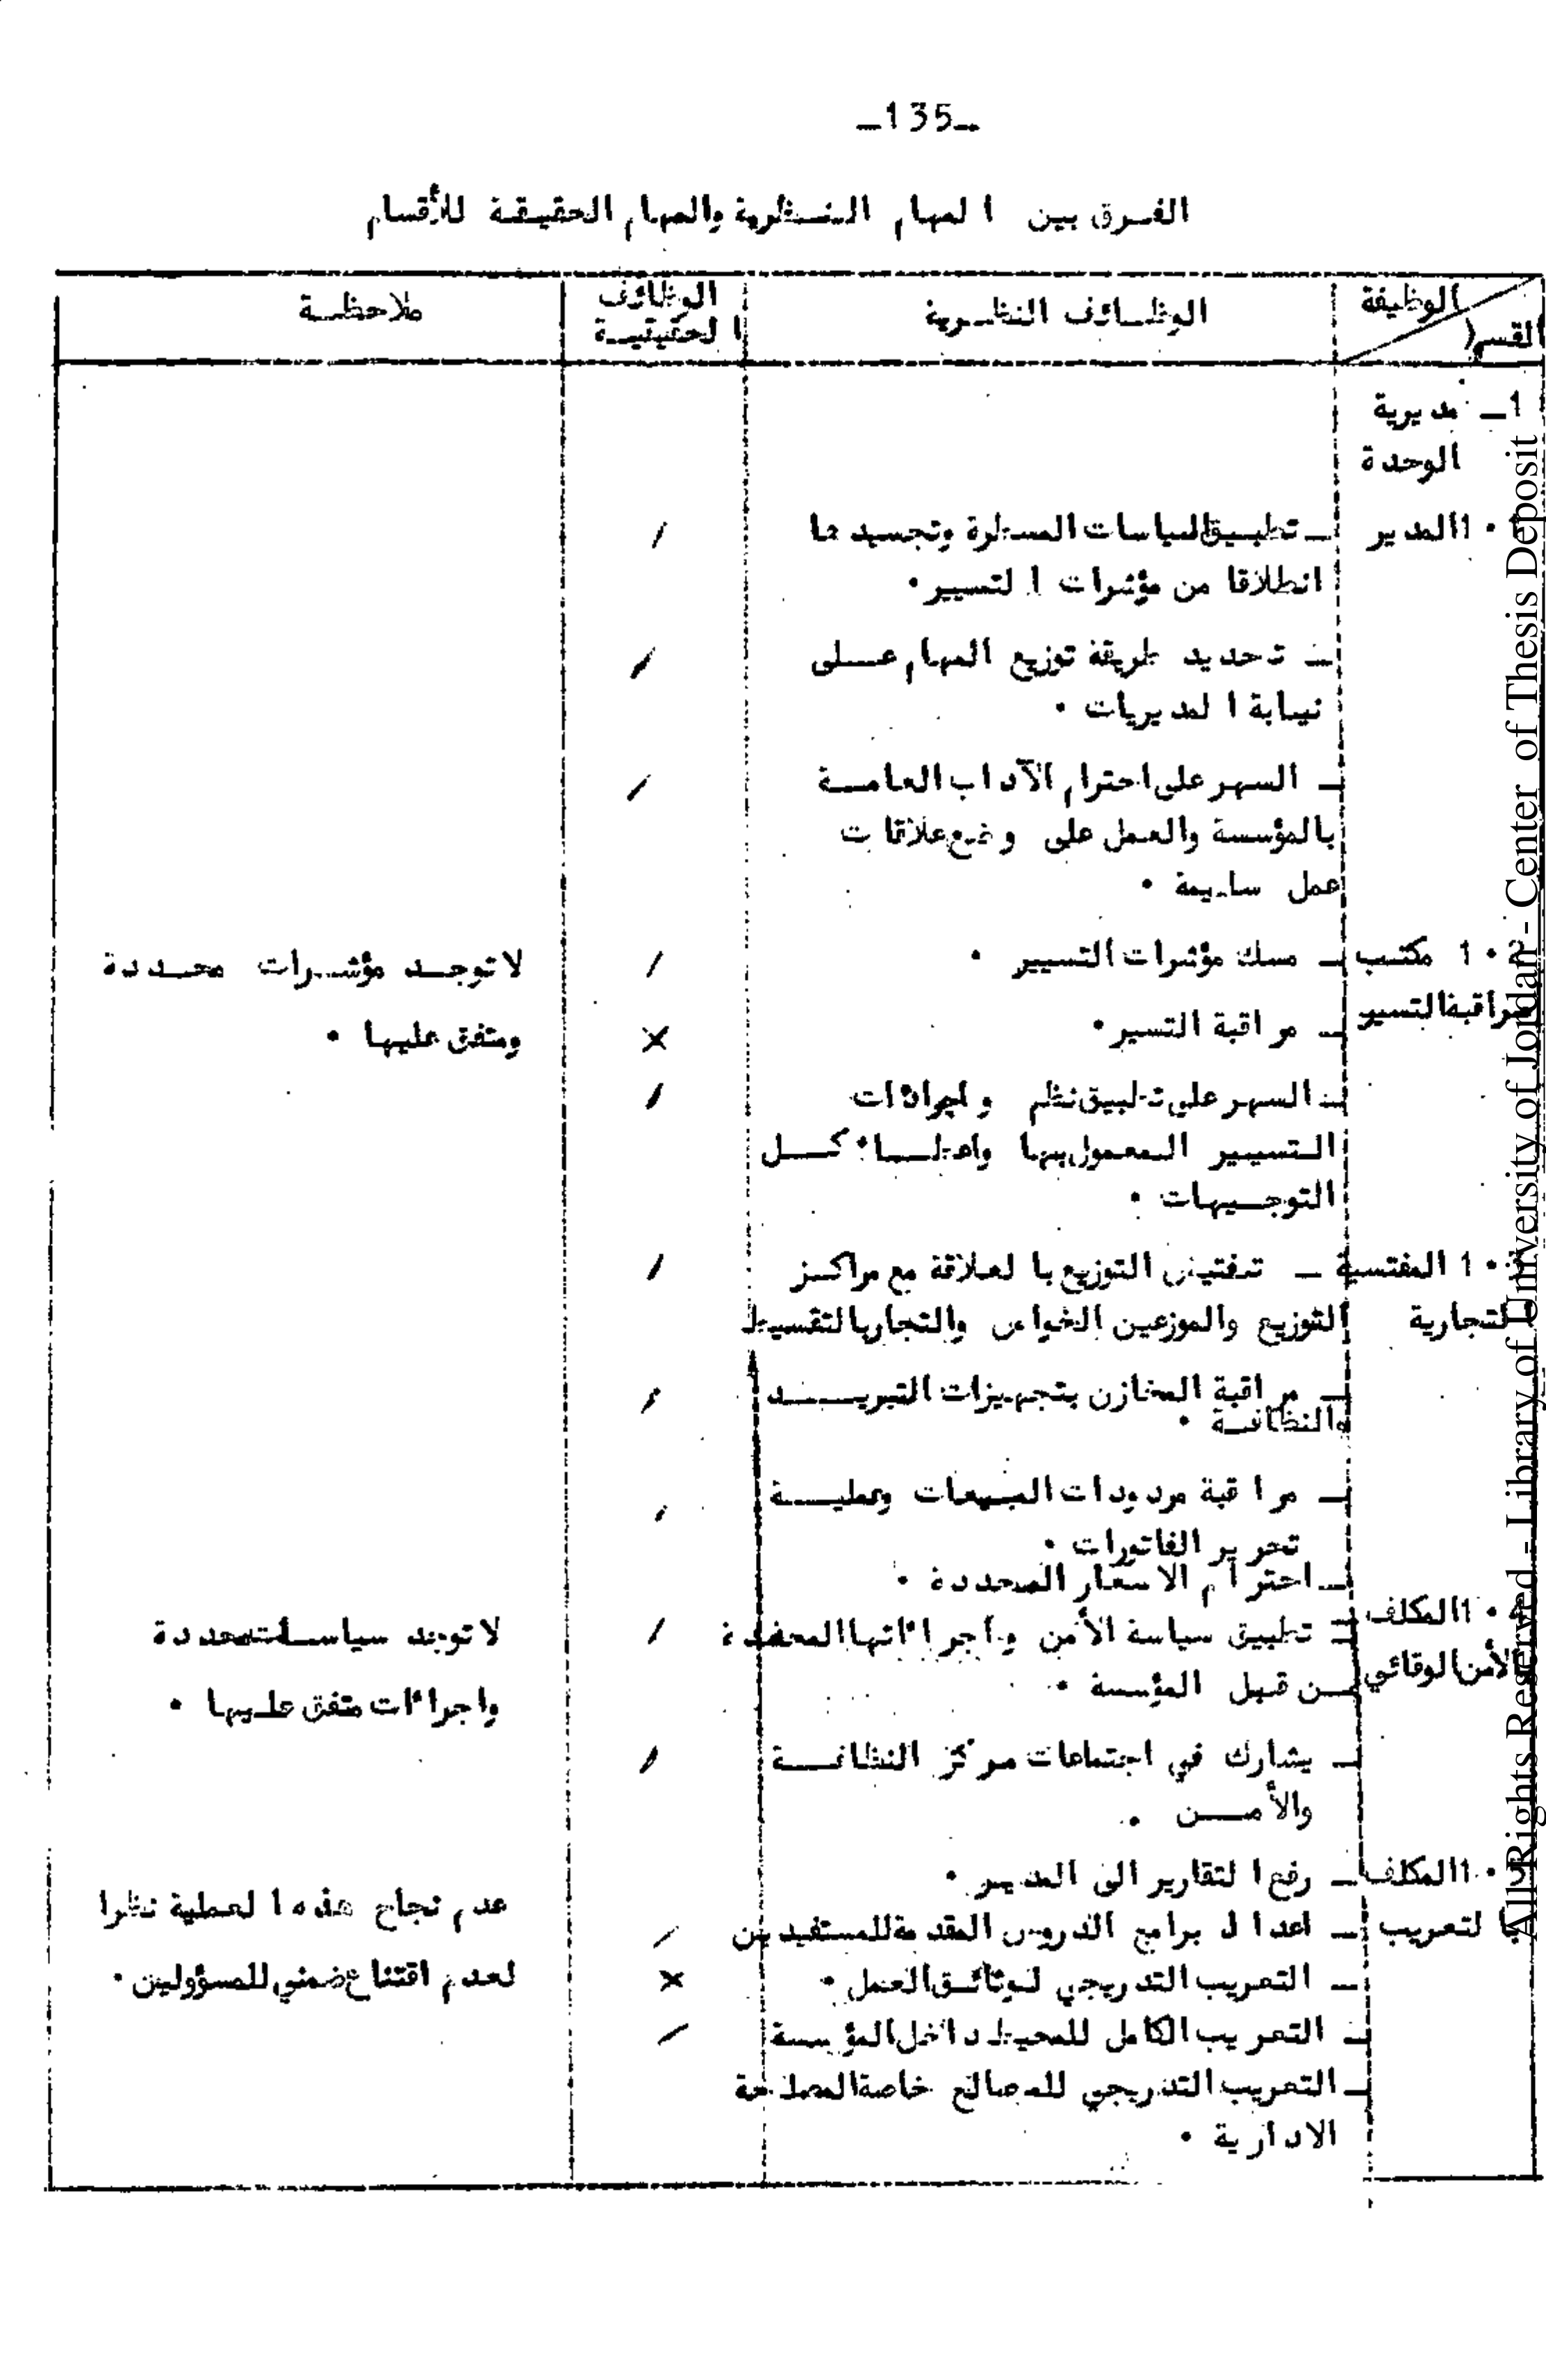 –135–
الفرق بين المهام النظرية والمهام الحقيقة للأقسام
الوظيفة
القسم
الوظائف النظرية
الوظائف
الحقيقية
ملاحظة
1– مديرية
الوحدة
1 المدير
– تطبيق السياسات المسطرة وتجسيدها
/
انطلاقا من مؤشرات التسيير.
– تحديد طريقة توزيع المهام على
/
نيابة المديريات.
– السهر على احترام الآداب العامة
/
بالمؤسسة والعمل على وضع علاقات
عمل سليمة.
2 . 1 مكتب
– مسك مؤشرات التسيير.
/
لا توجد مؤشرات محددة
مراقبة التسيير
– مراقبة التسير.
×
ومتفق عليها.
– السهر على تطبيق نظم واجراءات
/
التسيير المعمول بها واعطاء كل
التوجيهات.
. 1 المفتسية
– تفتيش التوزيع بالعلاقة مع مراكز
/
التجارية
التوزيع والموزعين الخواص والتجار بالتقسيط
– مراقبة المخازن بتجهيزات التبريد
/
والنظافة.
– مراقبة مردودات المبيعات وعملية
/
تحرير الفاتورات.
– احترام الاسعار المحددة.
. 1 المكلف
– تطبيق سياسة الأمن واجراءاتها المحددة
/
لا توجد سياسات محددة
بالأمن الوقائي
من قبل المؤسسة.
واجراءات متفق عليها.
– يشارك في اجتماعات مركز النظافة
/
والأمن.
. 1 المكلف
– رفع التقارير الى المدير.
عدم نجاح هذه العملية نظرا
بالتعريب
– اعداد برامج الدروس المقدمة للمستفيدين
/
– التعريب التدريجي لوثائق العمل.
×
لعدم اقتناع ضمني للمسؤولين.
– التعريب الكامل للمحيط داخل المؤسسة
/
– التعريب التدريجي للمصالح خاصة المصلحة
الادارية.
All Rights Reserved - Library of University of Jordan - Center of Thesis Deposit